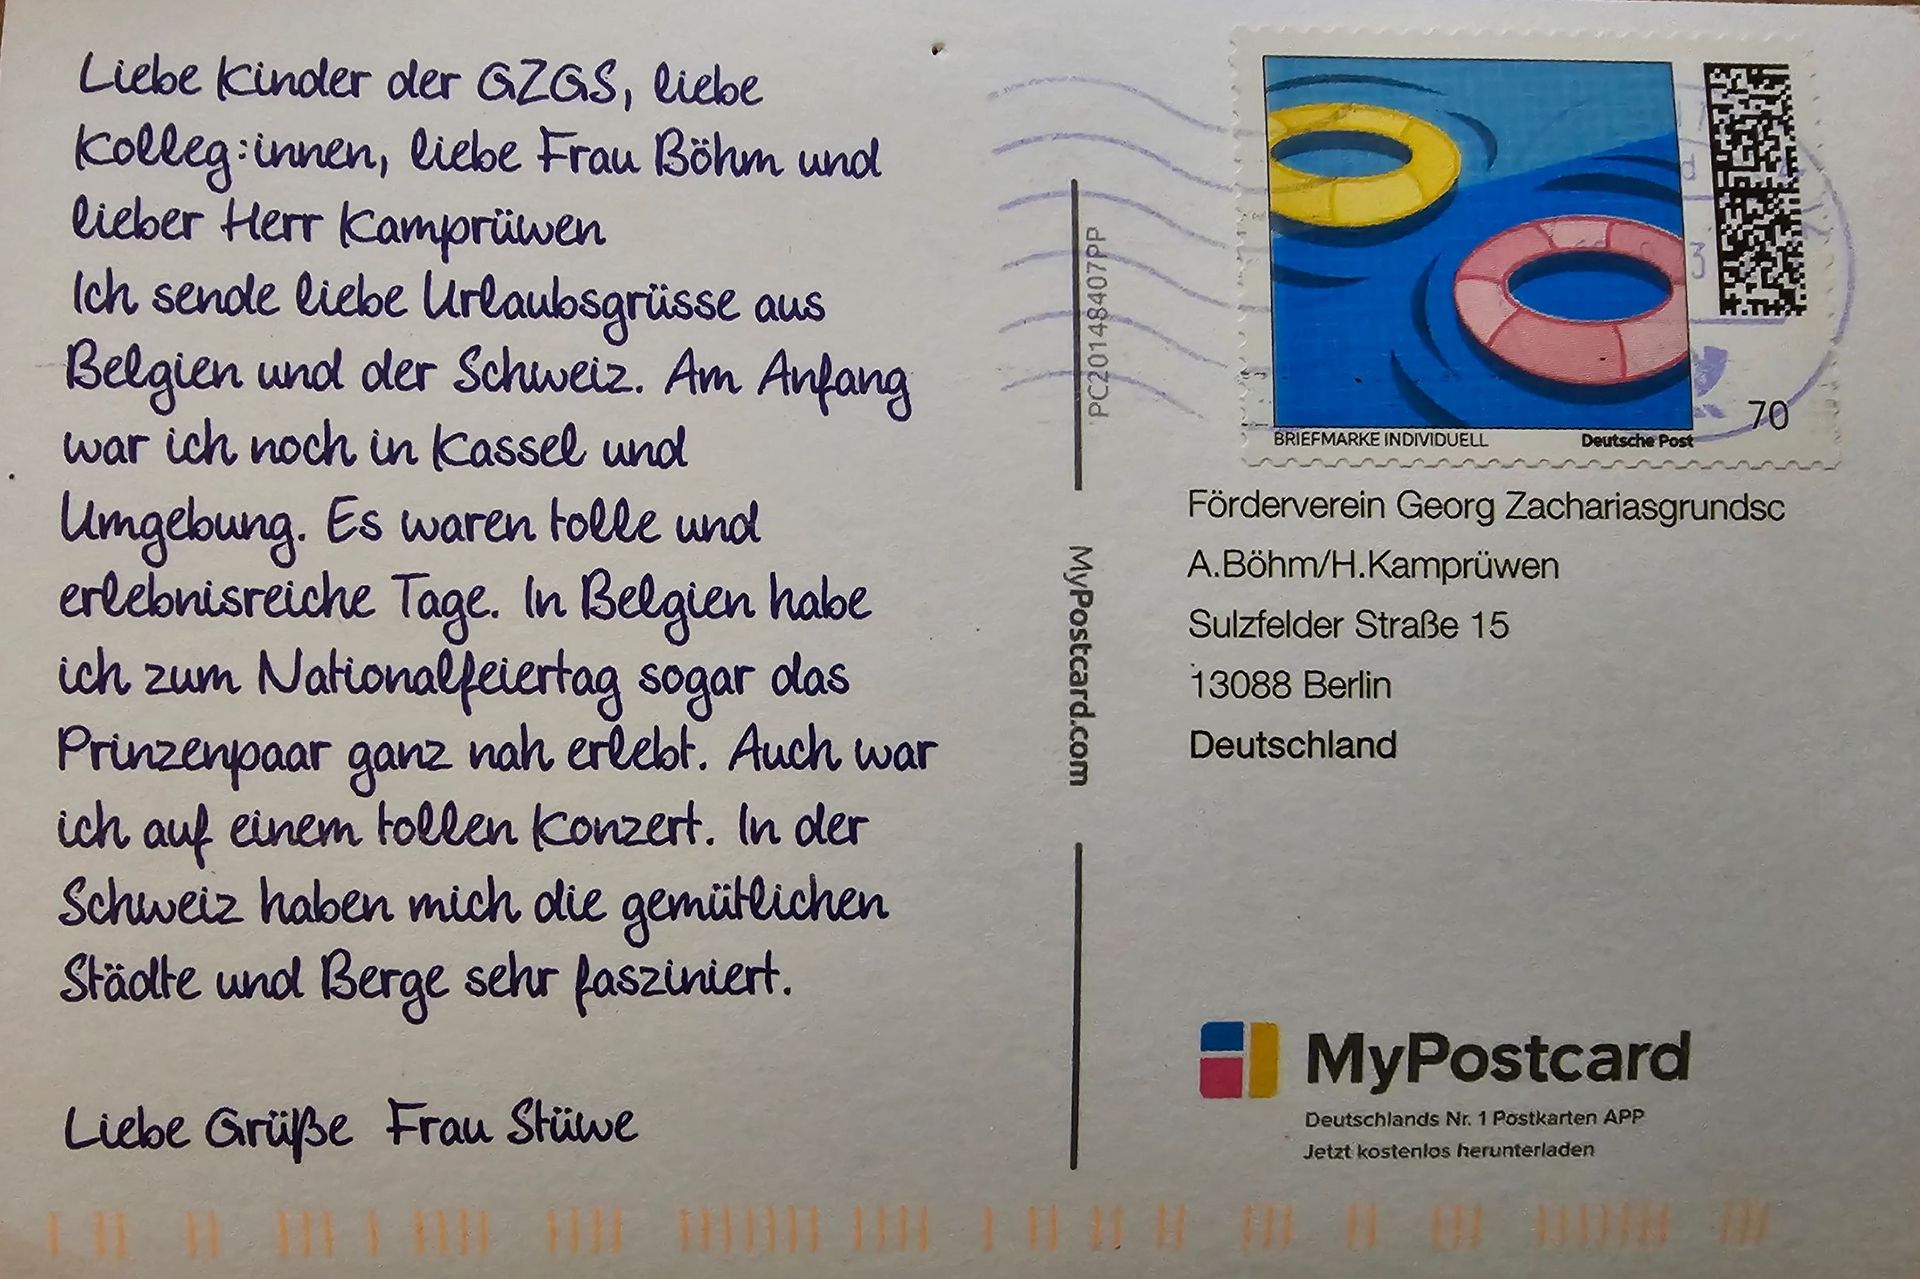 Liebe Kinder der GZGS, liebe
Kolleg:innen, liebe Frau Böhm und
lieber Herr Kamprüwen
Ich sende liebe Urlaubsgrüsse aus
Belgien und der Schweiz. Am Anfang
war ich noch in Kassel und
Umgebung. Es waren tolle und
erlebnisreiche Tage. In Belgien habe
ich zum Nationalfeiertag sogar das
Prinzenpaar ganz nah erlebt. Auch war
ich auf einem tollen Konzert. In der
Schweiz haben mich die gemütlichen
Städte und Berge sehr fasziniert.
Liebe Grüße Frau Stüwe
PC20148407PP
MyPostcard.com
70
BRIEFMARKE INDIVIDUELL Deutsche Post
Förderverein Georg Zachariasgrundsc
A.Böhm/H.Kamprüwen
Sulzfelder Straße 15
13088 Berlin
Deutschland
MyPostcard
Deutschlands Nr. 1 Postkarten APP
Jetzt kostenlos herunterladen